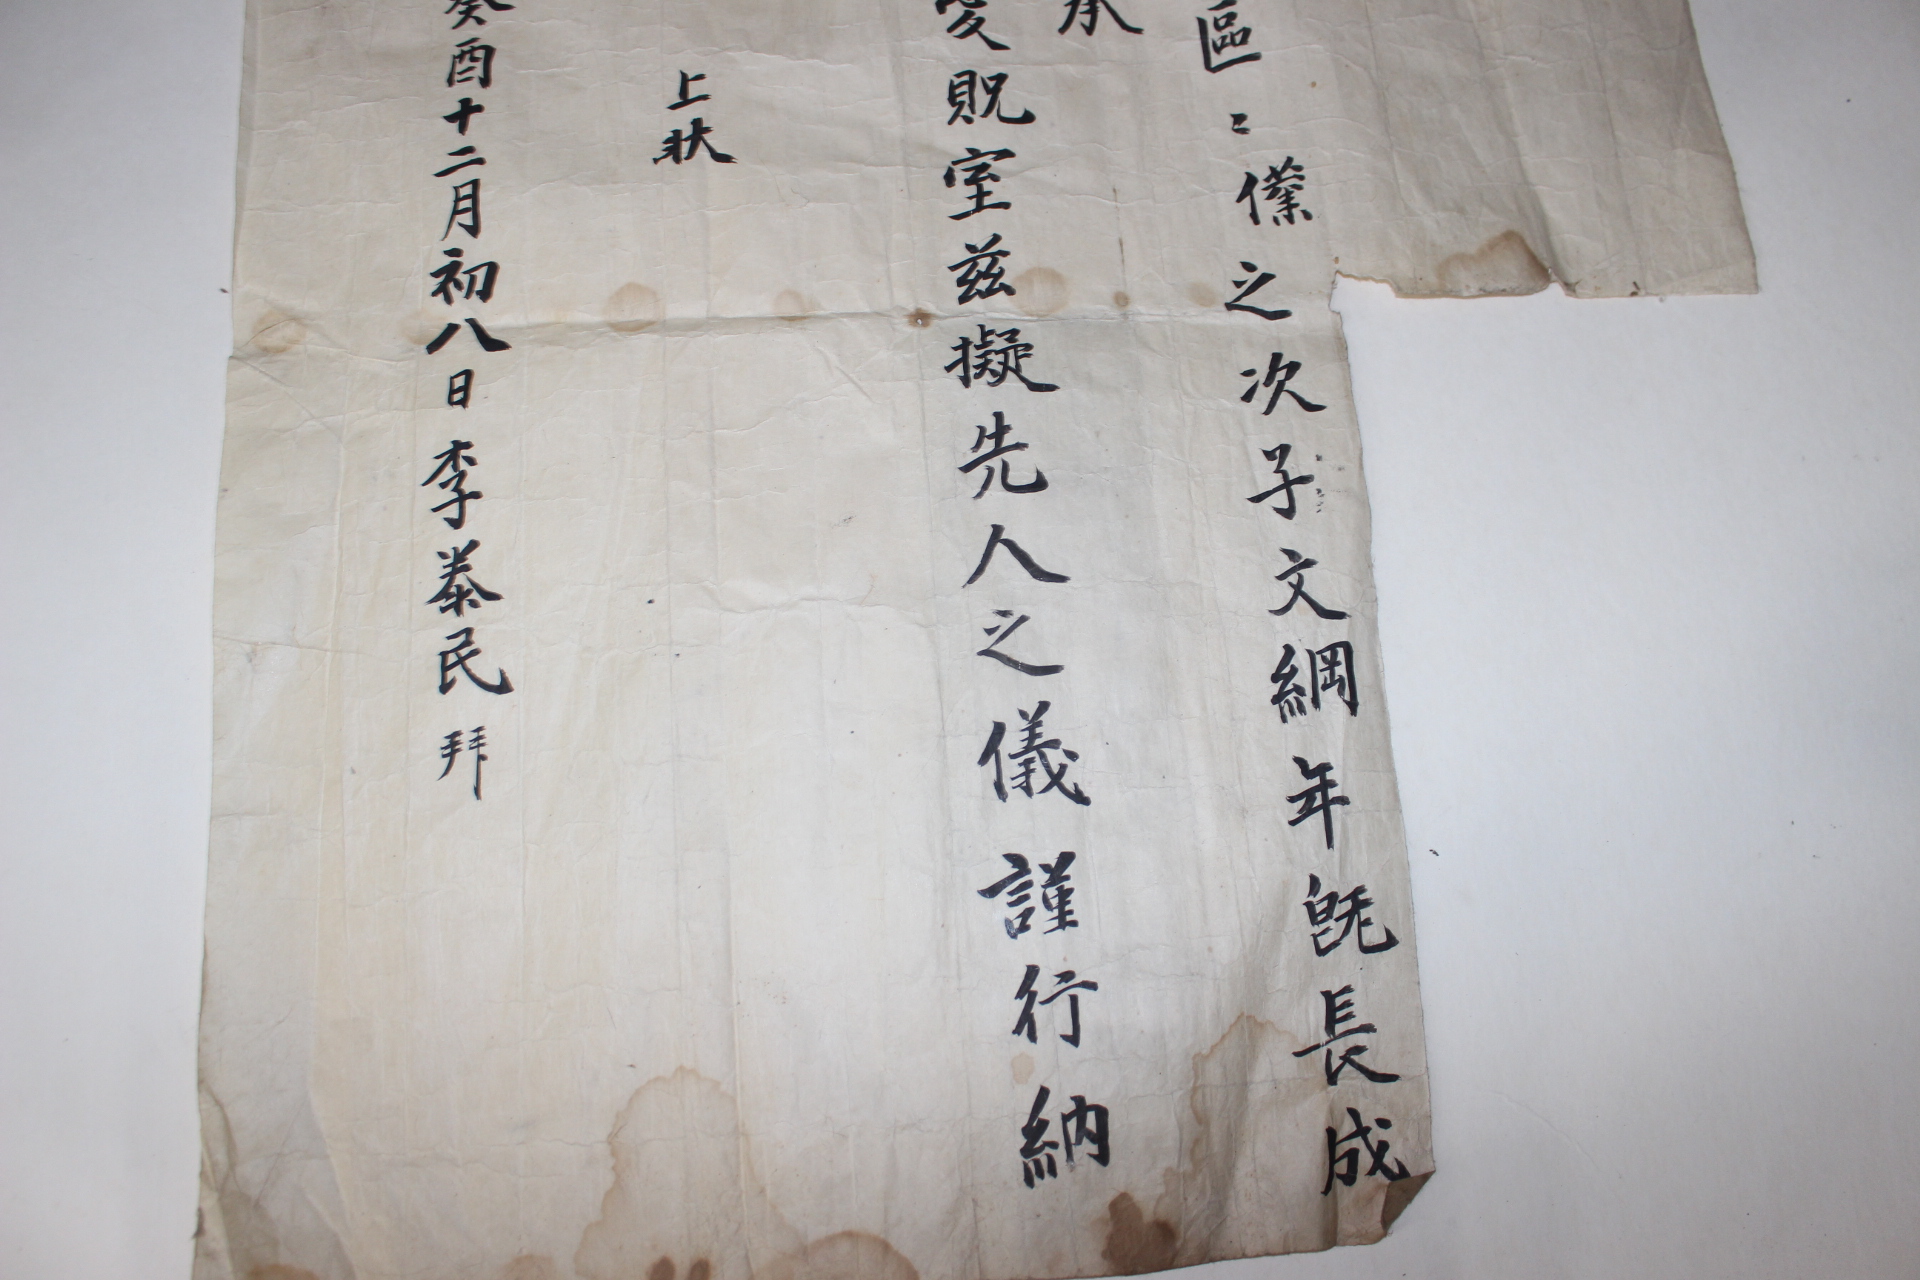 區〻僕之次子文綱年旣長成
承
愛貺室玆擬先人之儀謹行納
上狀
癸酉十二月初八日李泰民拜